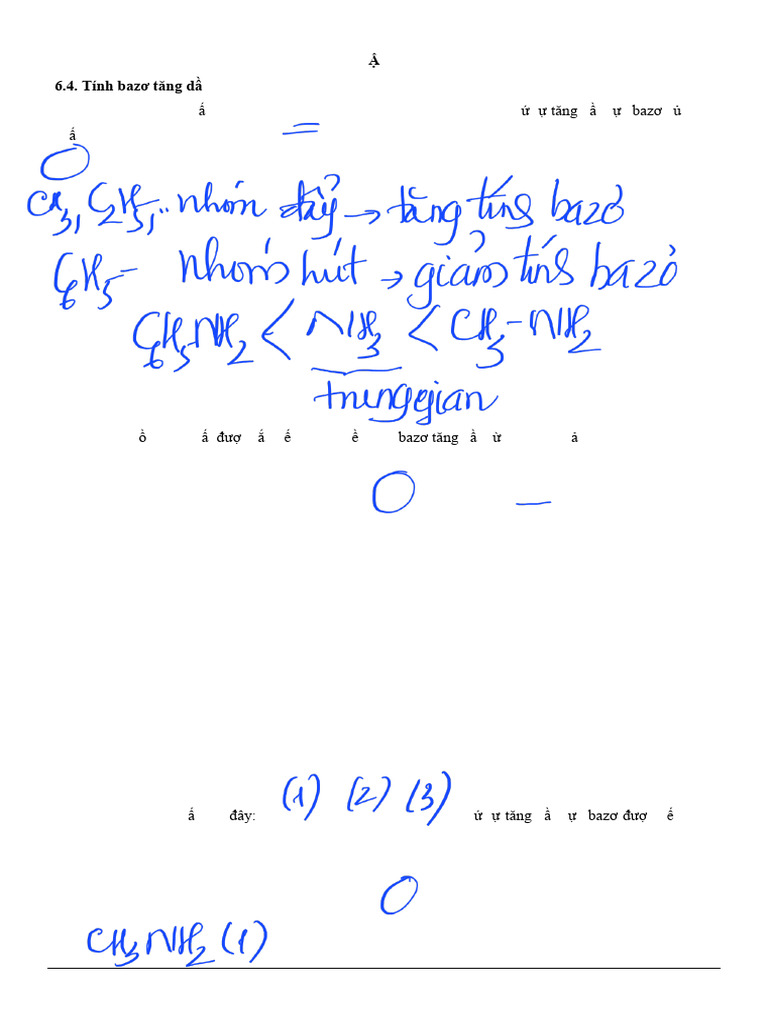 Ậ
6.4. Tính bazơ tăng dầ
ấ ứ ự tăng ầ ự bazơ ủ
ấ
CH3, C2H5,.. nhóm đẩy → tăng tính bazơ
C6H5- nhóm hút → giảm tính bazơ
C6H5NH2 < NH3 < CH3-NH2
trung gian
ồ ấ đượ ắ ế ề bazơ tăng ầ ừ ả
ấ đây: (1) (2) (3) ứ ự tăng ầ ự bazơ đượ ế
CH3NH2 (1)